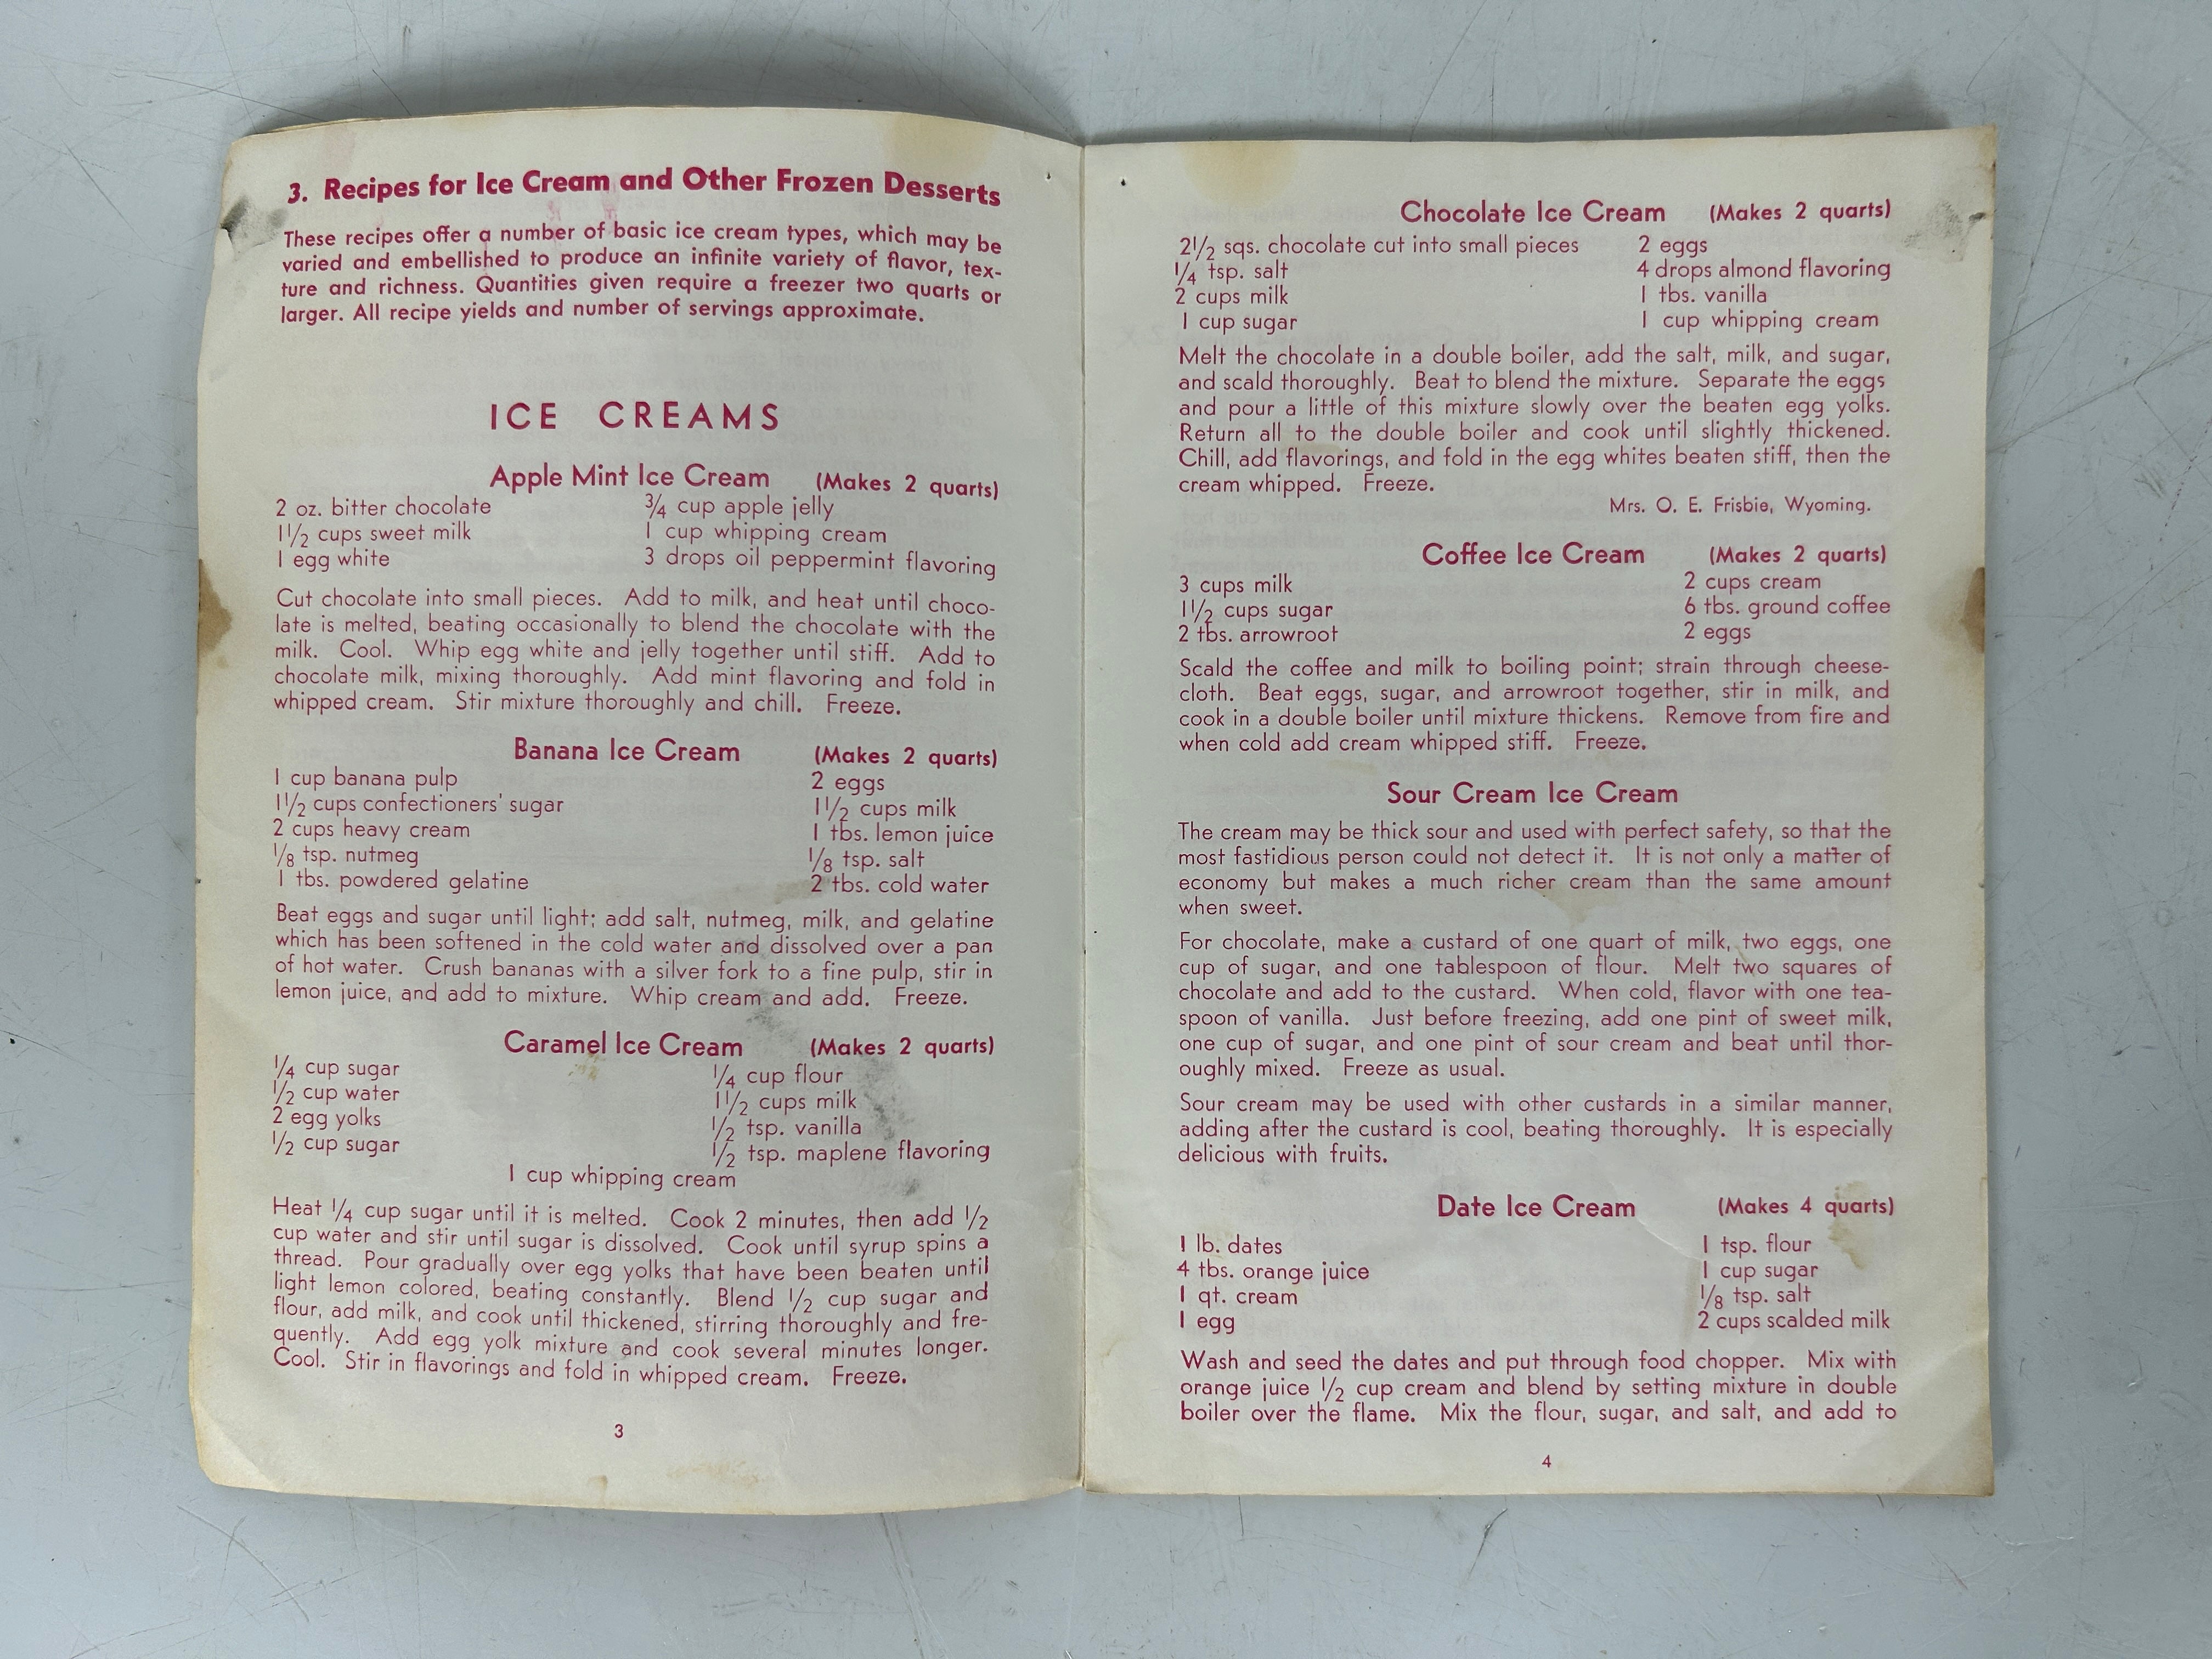 3. Recipes for Ice Cream and Other Frozen Desserts
These recipes offer a number of basic ice cream types, which may be
varied and embellished to produce an infinite variety of flavor, tex-
ture and richness. Quantities given require a freezer two quarts or
larger. All recipe yields and number of servings approximate.
ICE CREAMS
Apple Mint Ice Cream (Makes 2 quarts)
2 oz. bitter chocolate 3/4 cup apple jelly
1 1/2 cups sweet milk 1 cup whipping cream
1 egg white 3 drops oil peppermint flavoring
Cut chocolate into small pieces. Add to milk, and heat until choco-
late is melted, beating occasionally to blend the chocolate with the
milk. Cool. Whip egg white and jelly together until stiff. Add to
chocolate milk, mixing thoroughly. Add mint flavoring and fold in
whipped cream. Stir mixture thoroughly and chill. Freeze.
Banana Ice Cream (Makes 2 quarts)
1 cup banana pulp 2 eggs
1 1/2 cups confectioners' sugar 1 1/2 cups milk
2 cups heavy cream 1 tbs. lemon juice
1/8 tsp. nutmeg 1/8 tsp. salt
1 tbs. powdered gelatine 2 tbs. cold water
Beat eggs and sugar until light; add salt, nutmeg, milk, and gelatine
which has been softened in the cold water and dissolved over a pan
of hot water. Crush bananas with a silver fork to a fine pulp, stir in
lemon juice, and add to mixture. Whip cream and add. Freeze.
Caramel Ice Cream (Makes 2 quarts)
1/4 cup sugar 1/4 cup flour
1/2 cup water 1 1/2 cups milk
2 egg yolks 1/2 tsp. vanilla
1/2 cup sugar 1/2 tsp. maplene flavoring
1 cup whipping cream
Heat 1/4 cup sugar until it is melted. Cook 2 minutes, then add 1/2
cup water and stir until sugar is dissolved. Cook until syrup spins a
thread. Pour gradually over egg yolks that have been beaten until
light lemon colored, beating constantly. Blend 1/2 cup sugar and
flour, add milk, and cook until thickened, stirring thoroughly and fre-
quently. Add egg yolk mixture and cook several minutes longer.
Cool. Stir in flavorings and fold in whipped cream. Freeze.
3
Chocolate Ice Cream (Makes 2 quarts)
2 1/2 sqs. chocolate cut into small pieces 2 eggs
1/4 tsp. salt 4 drops almond flavoring
2 cups milk 1 tbs. vanilla
1 cup sugar 1 cup whipping cream
Melt the chocolate in a double boiler, add the salt, milk, and sugar,
and scald thoroughly. Beat to blend the mixture. Separate the eggs
and pour a little of this mixture slowly over the beaten egg yolks.
Return all to the double boiler and cook until slightly thickened.
Chill, add flavorings, and fold in the egg whites beaten stiff, then the
cream whipped. Freeze.
Mrs. O. E. Frisbie, Wyoming.
Coffee Ice Cream (Makes 2 quarts)
3 cups milk 2 cups cream
1 1/2 cups sugar 6 tbs. ground coffee
2 tbs. arrowroot 2 eggs
Scald the coffee and milk to boiling point; strain through cheese-
cloth. Beat eggs, sugar, and arrowroot together, stir in milk, and
cook in a double boiler until mixture thickens. Remove from fire and
when cold add cream whipped stiff. Freeze.
Sour Cream Ice Cream
The cream may be thick sour and used with perfect safety, so that the
most fastidious person could not detect it. It is not only a matter of
economy but makes a much richer cream than the same amount
when sweet.
For chocolate, make a custard of one quart of milk, two eggs, one
cup of sugar, and one tablespoon of flour. Melt two squares of
chocolate and add to the custard. When cold, flavor with one tea-
spoon of vanilla. Just before freezing, add one pint of sweet milk,
one cup of sugar, and one pint of sour cream and beat until thor-
oughly mixed. Freeze as usual.
Sour cream may be used with other custards in a similar manner,
adding after the custard is cool, beating thoroughly. It is especially
delicious with fruits.
Date Ice Cream (Makes 4 quarts)
1 lb. dates 1 tsp. flour
4 tbs. orange juice 1 cup sugar
1 qt. cream 1/8 tsp. salt
1 egg 2 cups scalded milk
Wash and seed the dates and put through food chopper. Mix with
orange juice 1/2 cup cream and blend by setting mixture in double
boiler over the flame. Mix the flour, sugar, and salt, and add to
4